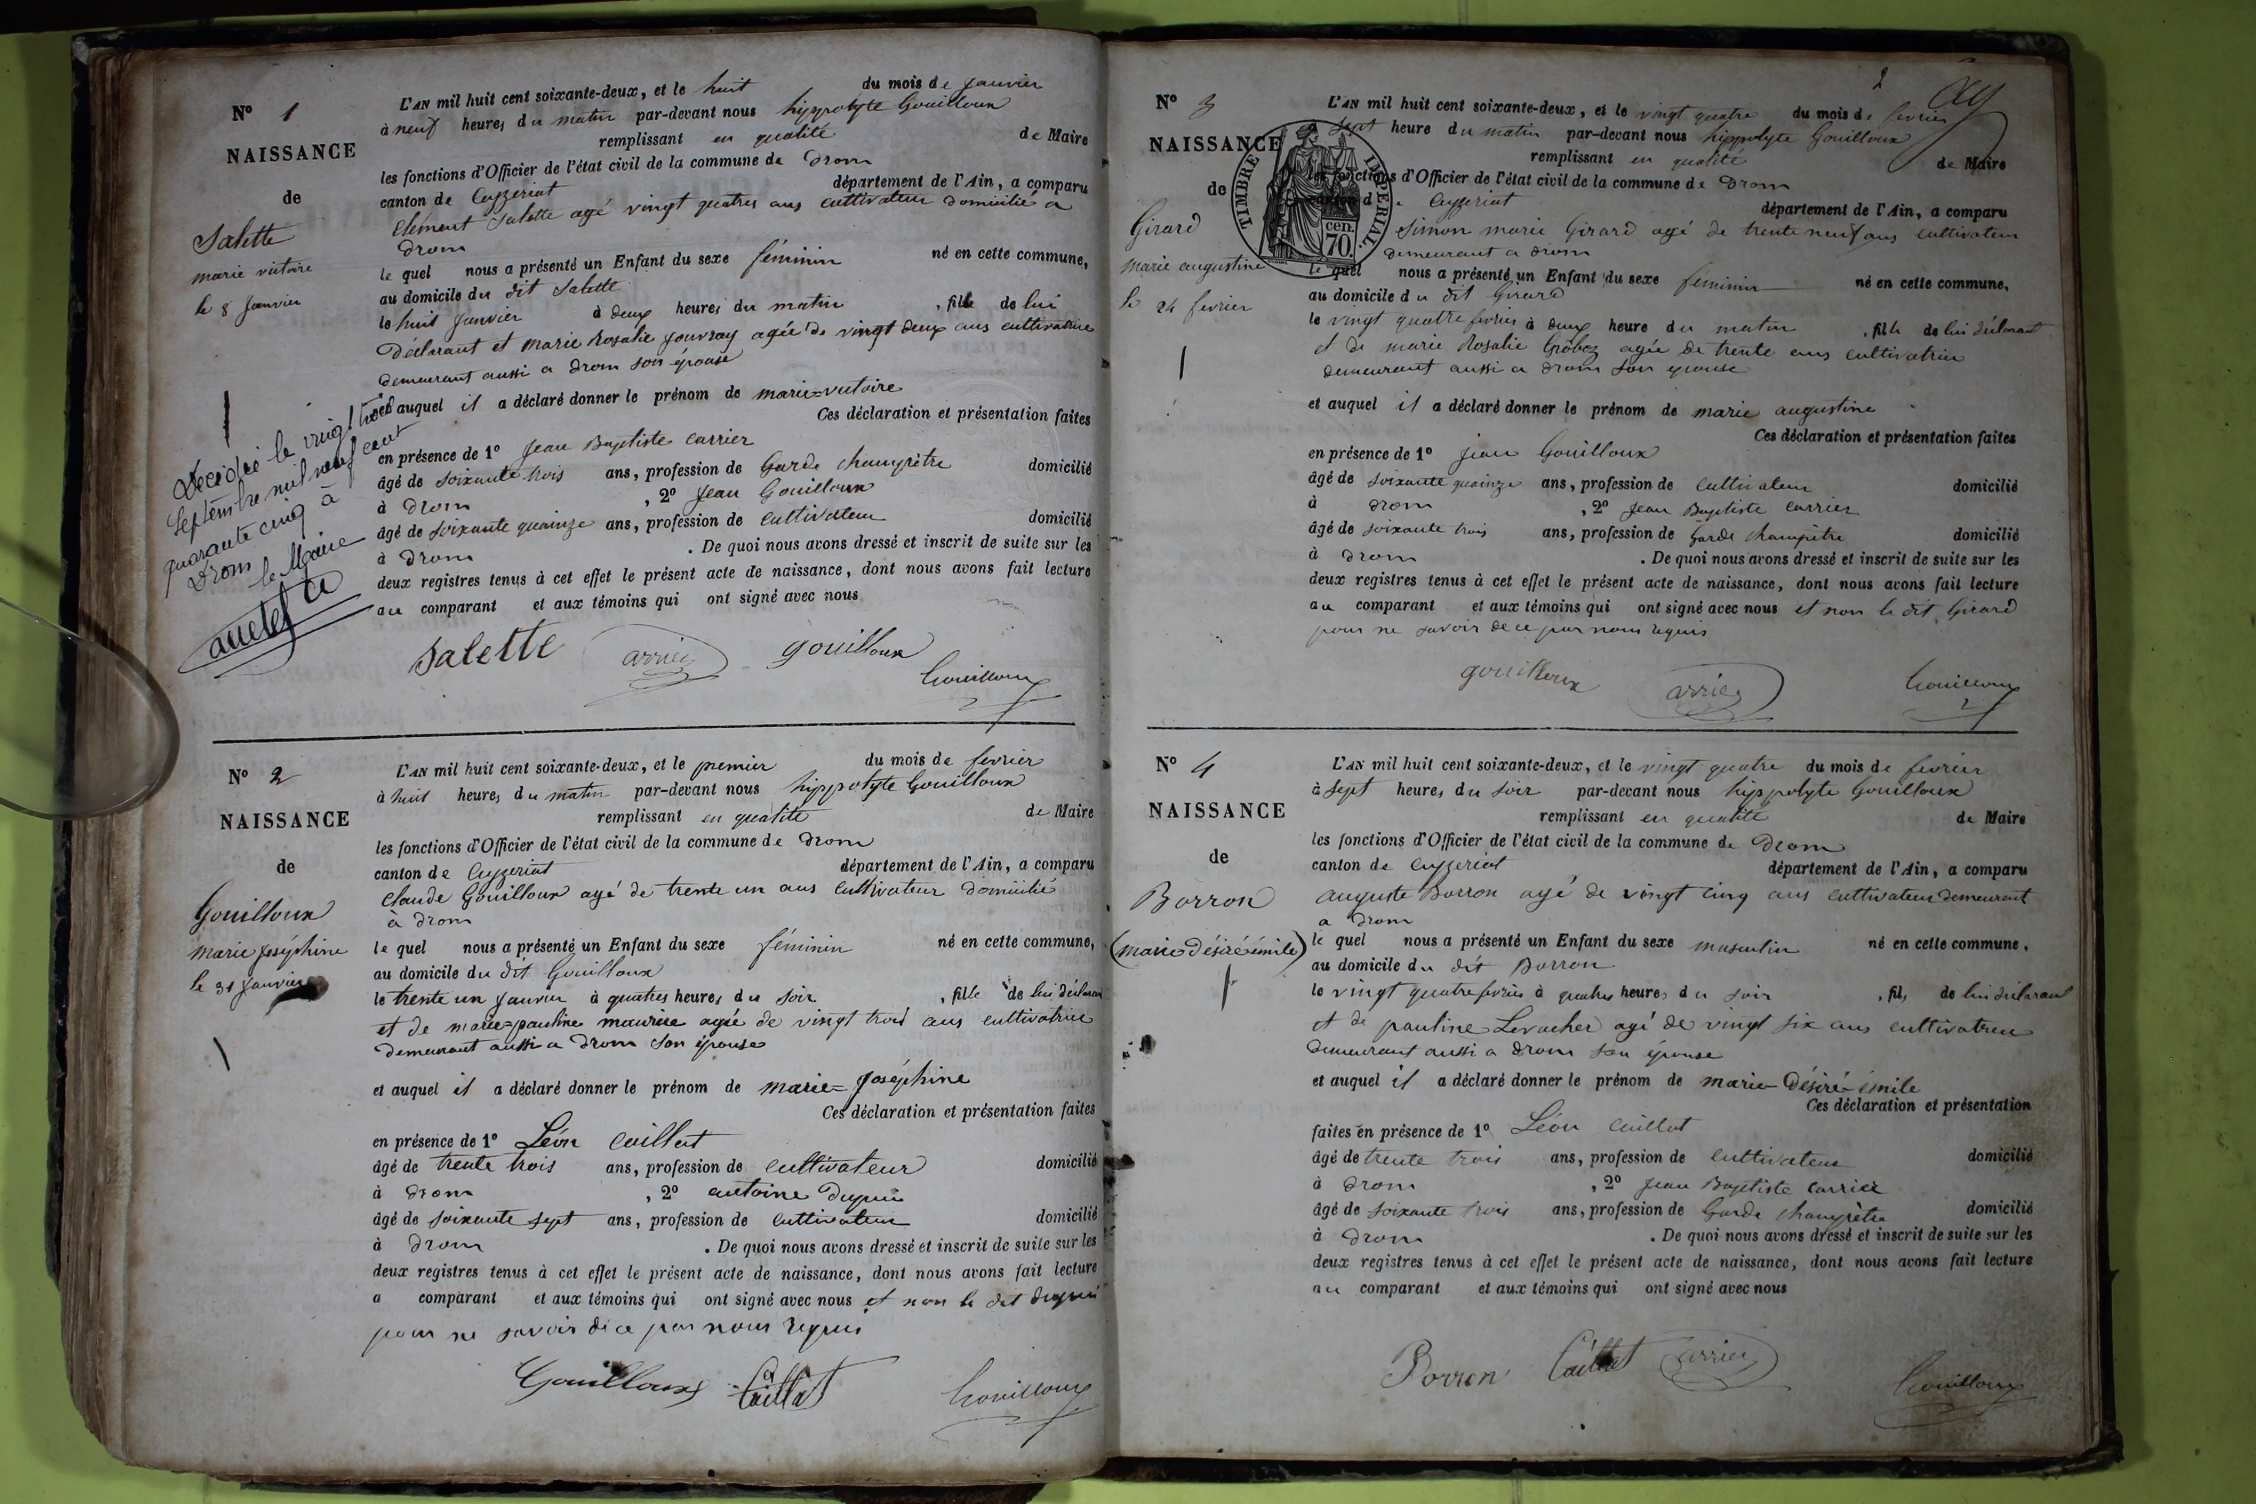 N° 1
NAISSANCE
de
Salette
marie victoire
le 8 Janvier
Decédée le vingt trois
Septembre mil neuf cent
quarante cinq à
Drom
le Maire
L'AN mil huit cent soixante-deux, et le huit du mois de Janvier
à neuf heures du matin par-devant nous hyppolyte Gouilloux
remplissant en qualité de Maire
les fonctions d'Officier de l'état civil de la commune de Drom
canton de Ceyzeriat département de l'Ain, a comparu
Clément Salette agé vingt quatres ans cultivateur domicilié a
Drom
le quel nous a présenté un Enfant du sexe féminin né en cette commune,
au domicile du dit Salette
le huit Janvier à deux heures du matin , fille de lui
déclarant et marie Rosalie Jouvray agée de vingt deux ans cultivatrice
demeurant aussi a Drom son épouse
et auquel il a déclaré donner le prénom de marie=victoire
Ces déclaration et présentation faites
en présence de 1° Jean Baptiste Carrier
âgé de soixante trois ans, profession de Garde champètre domicilié
à Drom , 2° Jean Gouilloux
âgé de soixante quainze ans, profession de cultivateur domicilié
à Drom . De quoi nous avons dressé et inscrit de suite sur les
deux registres tenus à cet effet le présent acte de naissance, dont nous avons fait lecture
au comparant et aux témoins qui ont signé avec nous
Salette arrier gouilloux Gouilloux
N° 2
NAISSANCE
de
Gouilloux
marie Joséphine
le 31 Janvier
L'AN mil huit cent soixante-deux, et le premier du mois de fevrier
à huit heures du matin par-devant nous hyppolyte Gouilloux
remplissant en qualité de Maire
les fonctions d'Officier de l'état civil de la commune de Drom
canton de Ceyzeriat département de l'Ain, a comparu
Claude Gouilloux agé de trente un ans cultivateur domicilié
à Drom
le quel nous a présenté un Enfant du sexe féminin né en cette commune,
au domicile du dit Gouilloux
le trente un Janvier à quatres heures du soir , fille de lui déclarant
et de marie=pauline maurice agée de vingt trois ans cultivatrice
demeurant aussi a Drom son épouse
et auquel il a déclaré donner le prénom de marie=Joséphine
Ces déclaration et présentation faites
en présence de 1° Léon Caillat
âgé de trente trois ans, profession de cultivateur domicilié
à Drom , 2° antoine Dupui
âgé de soixante sept ans, profession de cultivateur domicilié
à Drom . De quoi nous avons dressé et inscrit de suite sur les
deux registres tenus à cet effet le présent acte de naissance, dont nous avons fait lecture
a comparant et aux témoins qui ont signé avec nous et non le dit Dupui
pour ne savoir de ce par nous requis
Gouilloux Caillat Gouilloux
2
N° 3
NAISSANCE
de
Girard
marie augustine
le 24 fevrier
TIMBRE IMPERIAL
70 cen.
L'AN mil huit cent soixante-deux, et le vingt quatre du mois de fevrier
sept heure du matin par-devant nous hyppolyte Gouilloux
remplissant en qualité de Maire
les fonctions d'Officier de l'état civil de la commune de Drom
canton de Ceyzeriat département de l'Ain, a comparu
Simon marie Girard agé de trente neuf ans cultivateur
demeurant a Drom
le quel nous a présenté un Enfant du sexe féminin né en cette commune,
au domicile du dit Girard
le vingt quatre fevrier à deux heure du matin , fille de lui déclarant
et de marie Rosalie Gröboz agée de trente ans cultivatrice
demeurant aussi a Drom son épouse
et auquel il a déclaré donner le prénom de marie augustine
Ces déclaration et présentation faites
en présence de 1° Jean Gouilloux
âgé de soixante quainze ans, profession de cultivateur domicilié
à Drom , 2° Jean Baptiste Carrier
âgé de soixante trois ans, profession de Garde champètre domicilié
à Drom . De quoi nous avons dressé et inscrit de suite sur les
deux registres tenus à cet effet le présent acte de naissance, dont nous avons fait lecture
au comparant et aux témoins qui ont signé avec nous et non le dit Girard
pour ne savoir de ce par nous requis
gouilloux arrier Gouilloux
N° 4
NAISSANCE
de
Borron
(marie désiré émile)
L'AN mil huit cent soixante-deux, et le vingt quatre du mois de fevrier
à sept heures du soir par-devant nous hyppolyte Gouilloux
remplissant en qualité de Maire
les fonctions d'Officier de l'état civil de la commune de Drom
canton de Ceyzeriat département de l'Ain, a comparu
auguste Borron agé de vingt cinq ans cultivateur demeurant
a Drom
le quel nous a présenté un Enfant du sexe masculin né en cette commune,
au domicile du dit Borron
le vingt quatre fevrier à quatres heures du soir , fils de lui déclarant
et de pauline Levacher agé de vingt six ans cultivatrice
demeurant aussi a Drom son épouse
et auquel il a déclaré donner le prénom de marie-Désiré-émile
Ces déclaration et présentation
faites en présence de 1° Léon Caillat
âgé de trente trois ans, profession de cultivateur domicilié
à Drom , 2° Jean Baptiste Carrier
âgé de soixante trois ans, profession de Garde champètre domicilié
à Drom . De quoi nous avons dressé et inscrit de suite sur les
deux registres tenus à cet effet le présent acte de naissance, dont nous avons fait lecture
au comparant et aux témoins qui ont signé avec nous
Borron Caillat Carrier Gouilloux